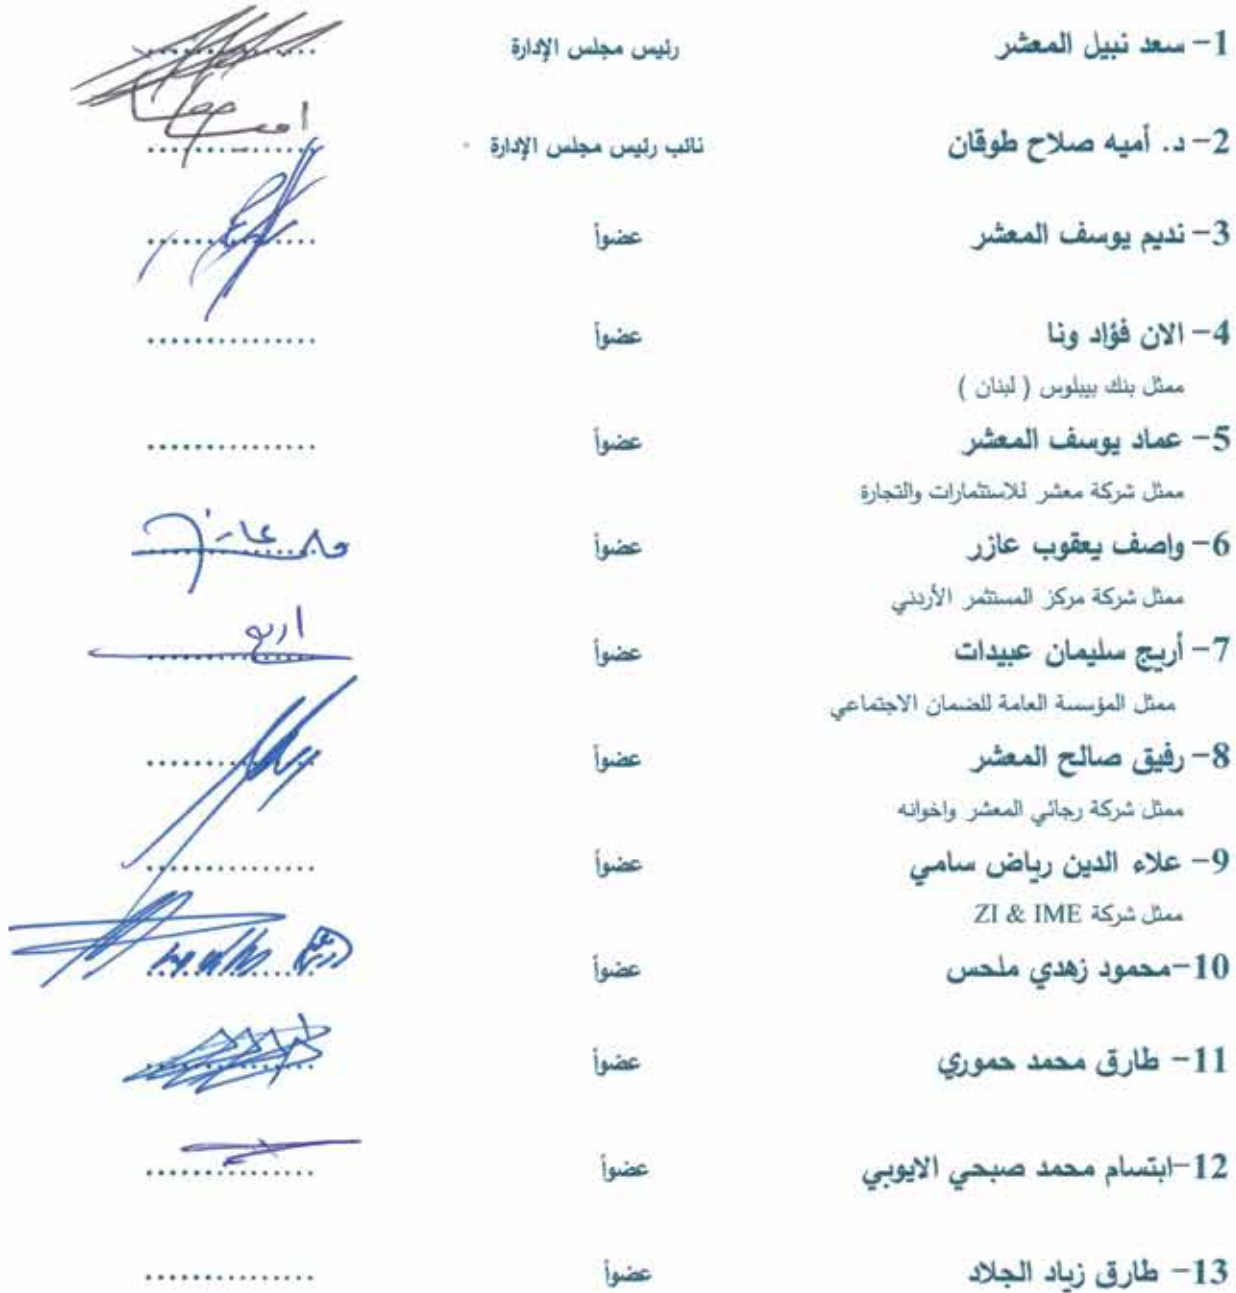 1- سعد نبيل المعشر رئيس مجلس الإدارة ...............
2- د. أميه صلاح طوقان نائب رئيس مجلس الإدارة ...............
3- نديم يوسف المعشر عضواً ...............
4- الان فؤاد ونا عضواً ...............
ممثل بنك بيبلوس ( لبنان )
5- عماد يوسف المعشر عضواً ...............
ممثل شركة معشر للاستثمارات والتجارة
6- واصف يعقوب عازر عضواً ...............
ممثل شركة مركز المستثمر الأردني
7- أريج سليمان عبيدات عضواً ...............
اريج
ممثل المؤسسة العامة للضمان الاجتماعي
8- رفيق صالح المعشر عضواً ...............
ممثل شركة رجائي المعشر واخوانه
9- علاء الدين رياض سامي عضواً ...............
ممثل شركة ZI & IME
10-محمود زهدي ملحس عضواً ...............
11- طارق محمد حموري عضواً ...............
12-ابتسام محمد صبحي الايوبي عضواً ...............
13- طارق زياد الجلاد عضواً ...............